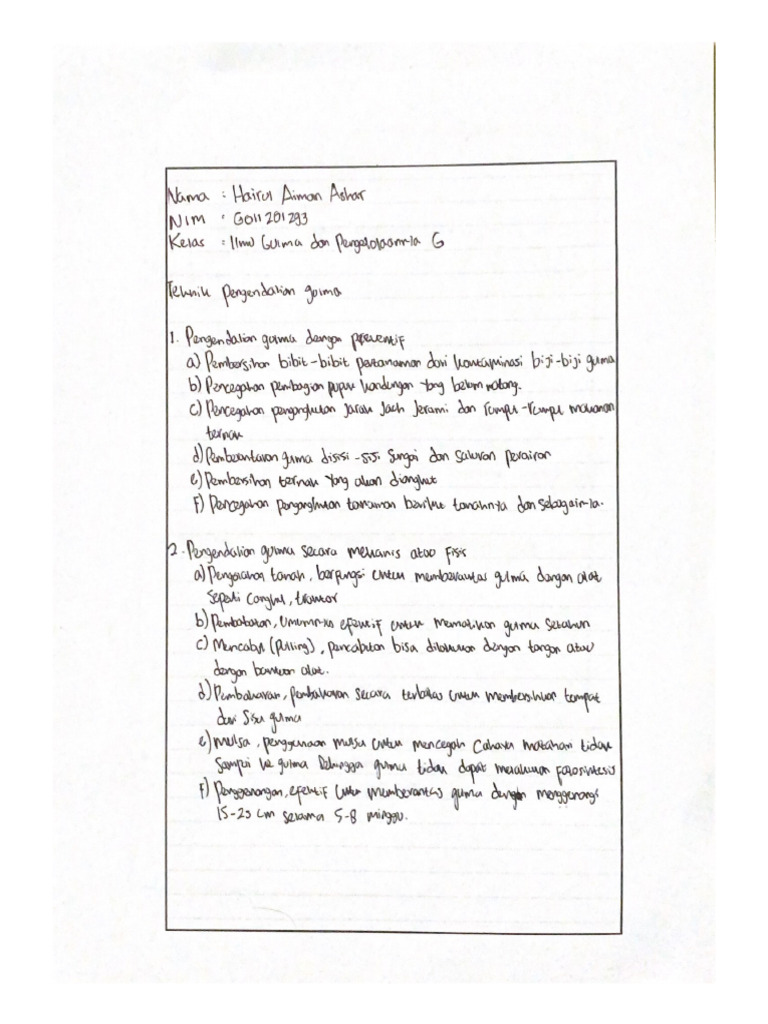 Nama : Hairul Aiman Ashar
NIM : G011201293
Kelas : Ilmu Gulma dan Pengelolaannya G
Teknik Pengendalian gulma
1. Pengendalian gulma dengan preventif
a) Pembersihan bibit-bibit pertanaman dari kontaminasi biji-biji gulma
b) Pencegahan pembagian pupuk kandungan yang belum matang.
c) Pencegahan pengangkutan jarak jauh jerami dan rumput-rumput makanan
ternak
d) Pemberantasan gulma disisi-sisi sungai dan saluran perairan
e) Pembersihan ternak yang akan diangkut
f) Pencegahan pengangkutan tanaman berikut tanahnya dan sebagainya.
2. Pengendalian gulma secara mekanis atau fisis
a) Pengolahan tanah, berfungsi untuk memberantas gulma dengan alat
seperti cangkul, traktor
b) Pembabatan, umumnya efektif untuk mematikan gulma setahun
c) Mencabut (Pulling), pencabutan bisa dilakukan dengan tangan atau
dengan bantuan alat.
d) Pembakaran, pembakaran secara terbatas untuk membersihkan tempat
dari sisa gulma
e) Mulsa, penggunaan mulsa untuk mencegah cahaya matahari tidak
sampai ke gulma sehingga gulma tidak dapat melakukan fotosintesis
f) Penggenangan, efektif untuk memberantas gulma dengan menggenangi
15-25 cm selama 5-8 minggu.